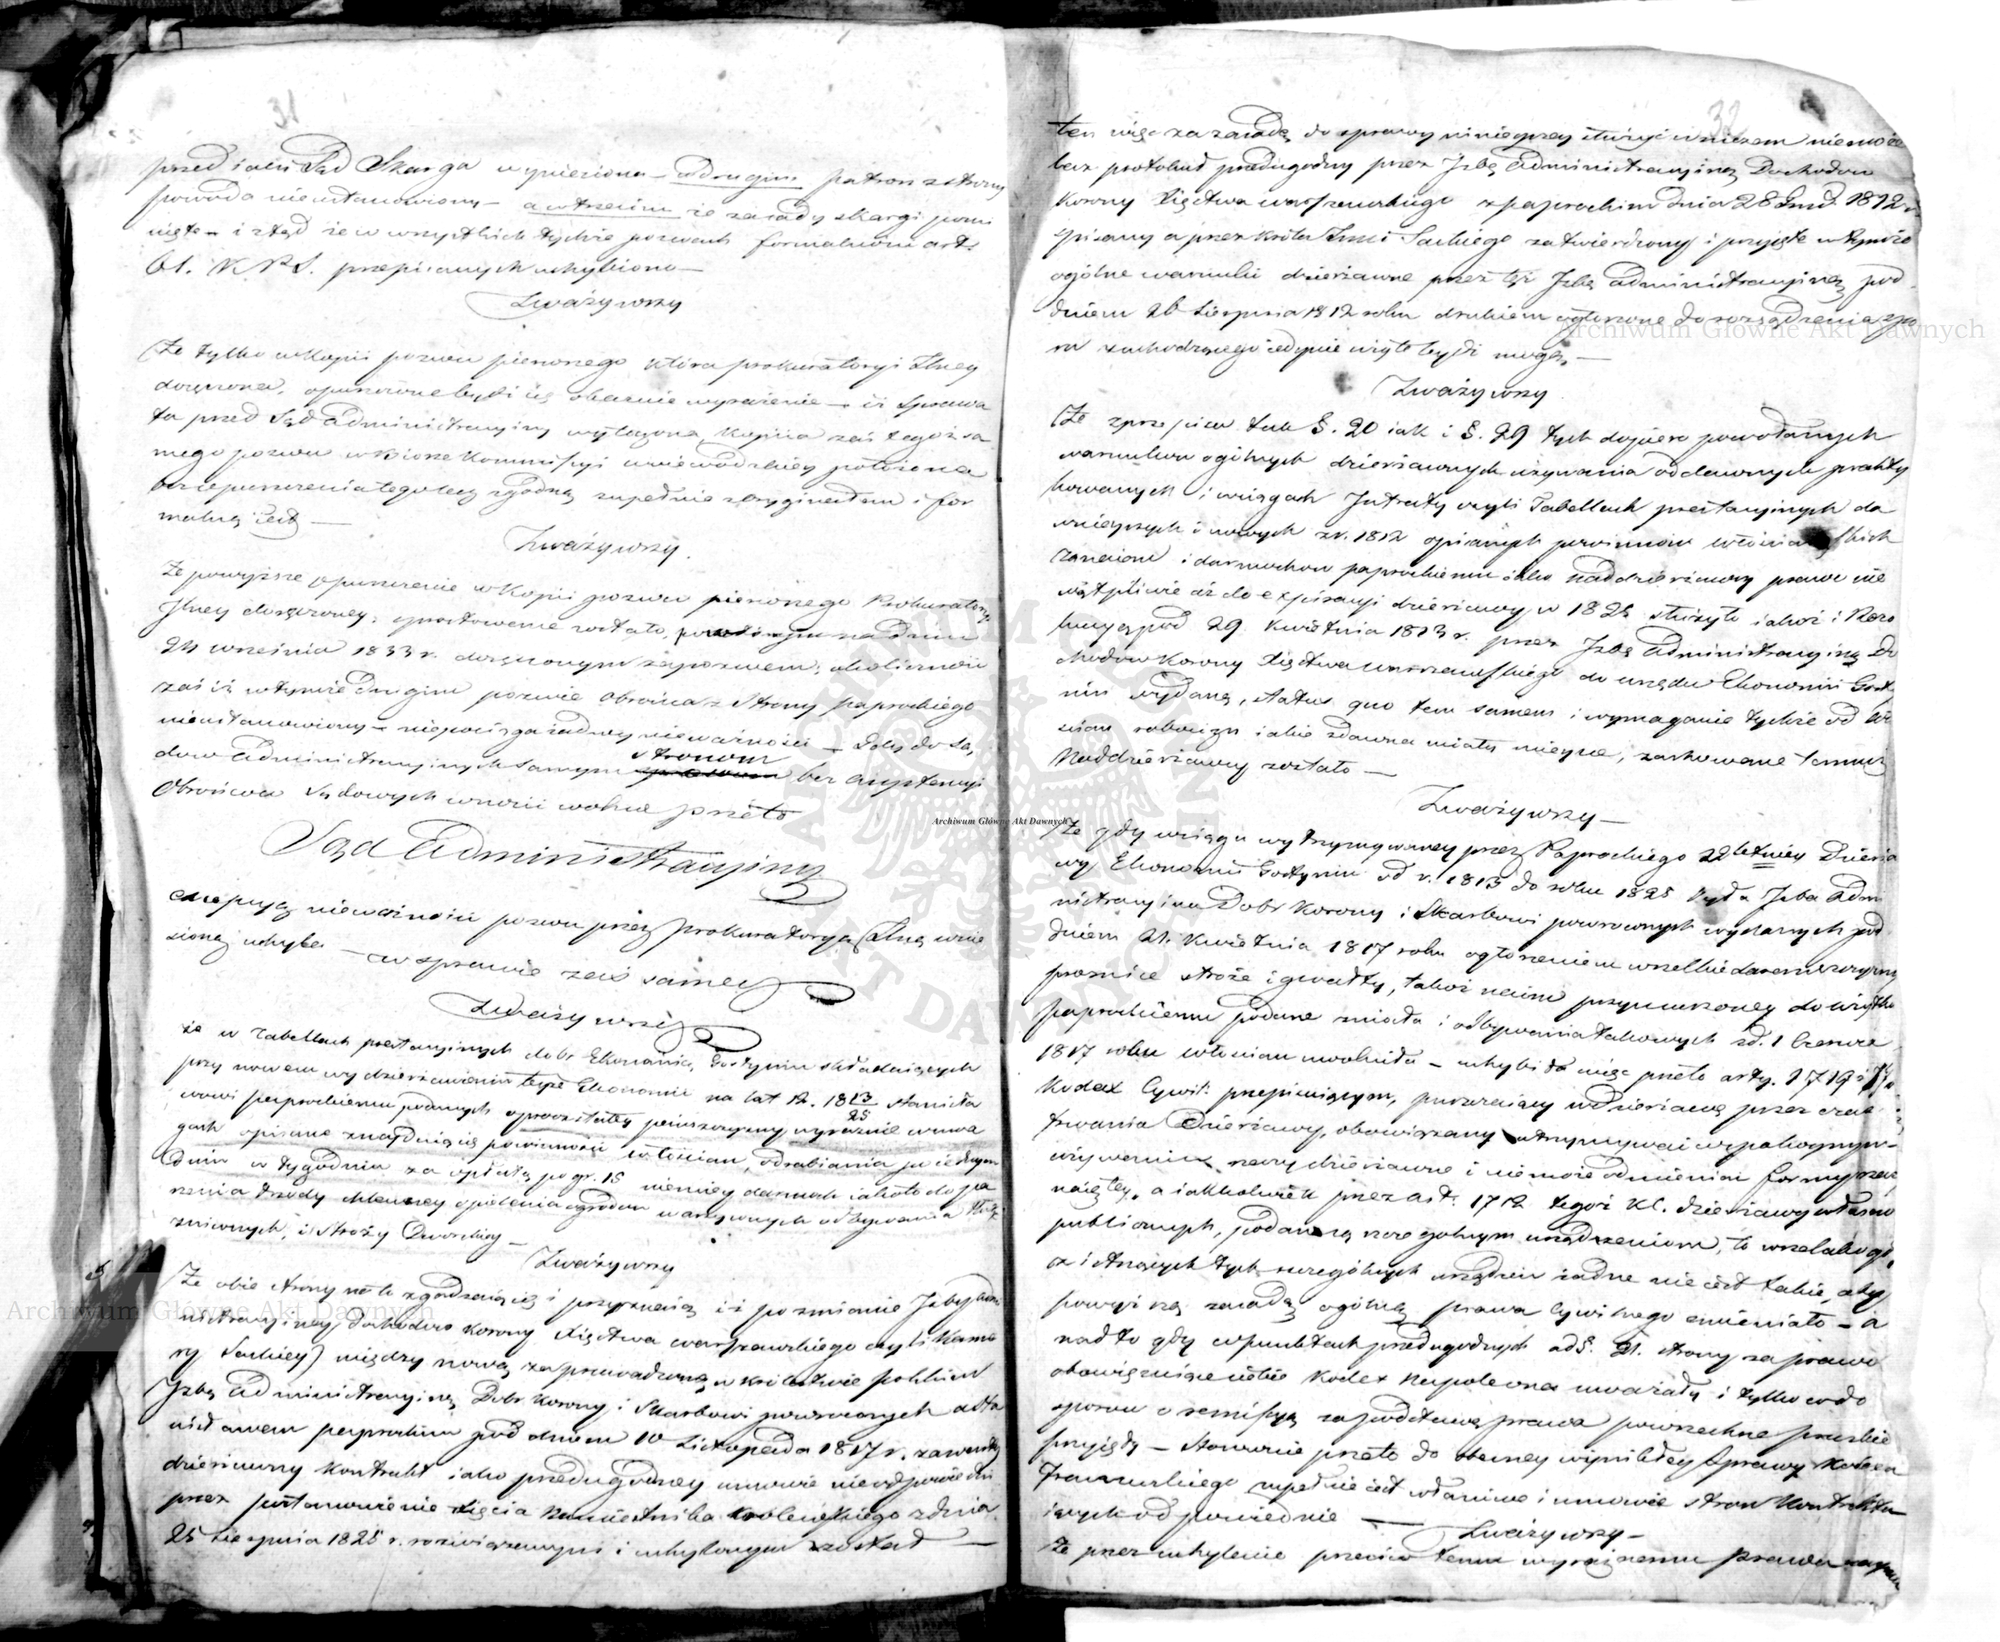 31
przed iaki Sąd Skarga wyniesiona — a drugim patron z strony
powoda nieustanowiony — a w trzecim że zasady skargi pomi
nięte — i ztąd że w wszystkich tychże pozwach formalnościom art:
61. K.P.S. przepisanych uchybiono —
Zważywszy
Że tylko w kopii pozwu pierwszego która prokuratoryi Jlney
doręczona, opuszczone było iż obecnie wyrażenie — iż sprawa
ta przed Sąd Administracyiny wytoczona, kopiia zaś tegoż sa
mego pozwu w biorze Kommissyi woiewodzkiey położona
bez opuszczenia tego lecz zgodną zupełnie z oryginałem i for
malną iest —
Zważywszy.
Że powyższe opuszczenie w kopii pozwu pierwszego Prokuratoryi
Jlney doręczoney, sprostowane zostało, powtórnym na dniu
24 września 1833 r. doręczonym zapozwem; okoliczność
zaś iż w tymże drugim pozwie obrońca z strony Paprockiego
nieustanowiony — niepociąga żadney nieważności — gdyż do Są
dow Administracyinych samym stronom bez assystencyi
Obrońcow Sądowych wnosić wolno przeto
Sąd Administracyiny
excepcyą nieważności pozwu przez Prokuratoryą Jlną wnie
sioną uchyla — w sprawie zaś samey
Zważywszy
że w tabellach prestacyinych dobr Ekonomią Gostynin składaiących
przy nowem wydzierżawieniu teyże Ekonomii na lat 12. 18 13/25 Stanisła
wowi Paprockiemu podanych oprocz stałey pańszczyzny wyraźnie w uwa
gach opisane znayduią się powinności włościan, odrabiania po iednym
dniu w tygodniu za opłatą po gr. 15 niemniey darmoch iakoto do pa
szenia trzody chlewney opielenia ogrodow warzywnych odbywania
żniwnych, i stroży Dworskiey —
Zważywszy
Że obie strony na to zgadzaią się i przyznaią iż po zmianie Jzby Admi
nistracyiney dochodow korony Xięstwa warszawskiego czyli Kame
ry Saskiey) między nową zaprowadzoną w krolestwie polskim
Jzbą Administracyiną Dobr Korony i Skarbowi powroconych a Sta
nisławem Paprockim pod dniem 10 Listopada 1817 r. zawarty
dzierżawny kontrakt iako przedugodney umowie nieodpowiedni
przez postanowienie Xięcia Namiestnika Krolewskiego z dnia
25 Sierpnia 1825 r. rozwiązanym i uchylonym został —
32
ten więc za zasadę do sprawy ninieyszey służyć w niczem niemoże
lecz protokuł przedugodny przez Jzbę Administracyiną Dochodow
Korony Xięstwa warszawskiego z Paprockim dnia 28 1812 r.
spisany a przez Krola Jmci Saskiego zatwierdzony i przyięte w tymże
ogólne warunki dzierżawne przez tęż Jzbę Administracyiną pod
dniem 26 Sierpnia 1812 roku drukiem ogłoszone do rozsądzenia spo
ru zachodzącego iedynie wzięte bydź mogą. —
Zważywszy
Że z przepisu tak §. 20 iak i §. 29 tych dopiero powołanych
warunkow ogólnych dzierżawnych używania od dawnych prakty
kowanych i w księgach Jntraty czyli Tabellach prestacyinych da
wnieyszych i nowych z r. 1812 opisanych powinności włościańskich
i darmochow Paprockiemu iako Naddzierżawcy prawo nie
wątpliwie aż do expiracyi dzierżawy w 1825 służyło iakoż i
pod 29 Kwietnia 1813 r. przez Jzbę Administracyiną Do
chodow Korony Xięstwa warszawskiego do urzędu Ekonomii Gosty
nin wydaną, status quo tem samem i wymaganie tychże od
robocizn iakie zdawna miały mieysce, zachowane temuż
Naddzierżawcy zostało —
Zważywszy —
Że gdy w ciągu wytrzymywaney przez Paprockiego 12 letniey Dzierża
wy Ekonomii Gostynin od r. 1813 do roku 1825 Jzba Admi
nistracyina Dobr Korony i Skarbowi powroconych wydanych pod
dniem 21. Kwietnia 1817 roku ogłoszeniem wszelkie daremszczyzny
stroże i gwałty, takoż naim przymuszoney do użytku
Paprockiemu podane zniosła i odbywania takowych od 1 Czerwca
1817 roku włościan uwolniła — uchybiła więc przeto arty. 1719 i
Kodex Cywil: przepisuiącym, puszczaiący w dzierżawę przez czas
trwania Dzierżawy, obowiązany utrzymywać w spokoynym
używaniu rzeczy dzierżawne i niemoże odmieniać formy rzeczy
naiętey, a iakkolwiek przez art. 1712 tegoż K.C. dzierżawy własno
publicznych, poddane są szczegolnym urządzeniom, to wszelako gdy
z istnących tych szczególnych urządzeń żadne nie iest takie, aby
powyższą zasadę ogólną prawa Cywilnego zmieniało — a
nadto gdy w punktach przedugodnych ad §. 21. strony za prawo
obowięzuiące siebie Kodex Napoleona uważały i tylko co do
sporow o remissyą za podstawę prawo powszechne pruskie
przyięły — stosownie przeto do obecney wynikłey sprawy Kodexu
francuskiego zupełnie iest właściwe i umowie stron kontraktu
iących odpowiednie —
Zważywszy —
Że przez uchylenie przeciw temu wyraźnemu prawu